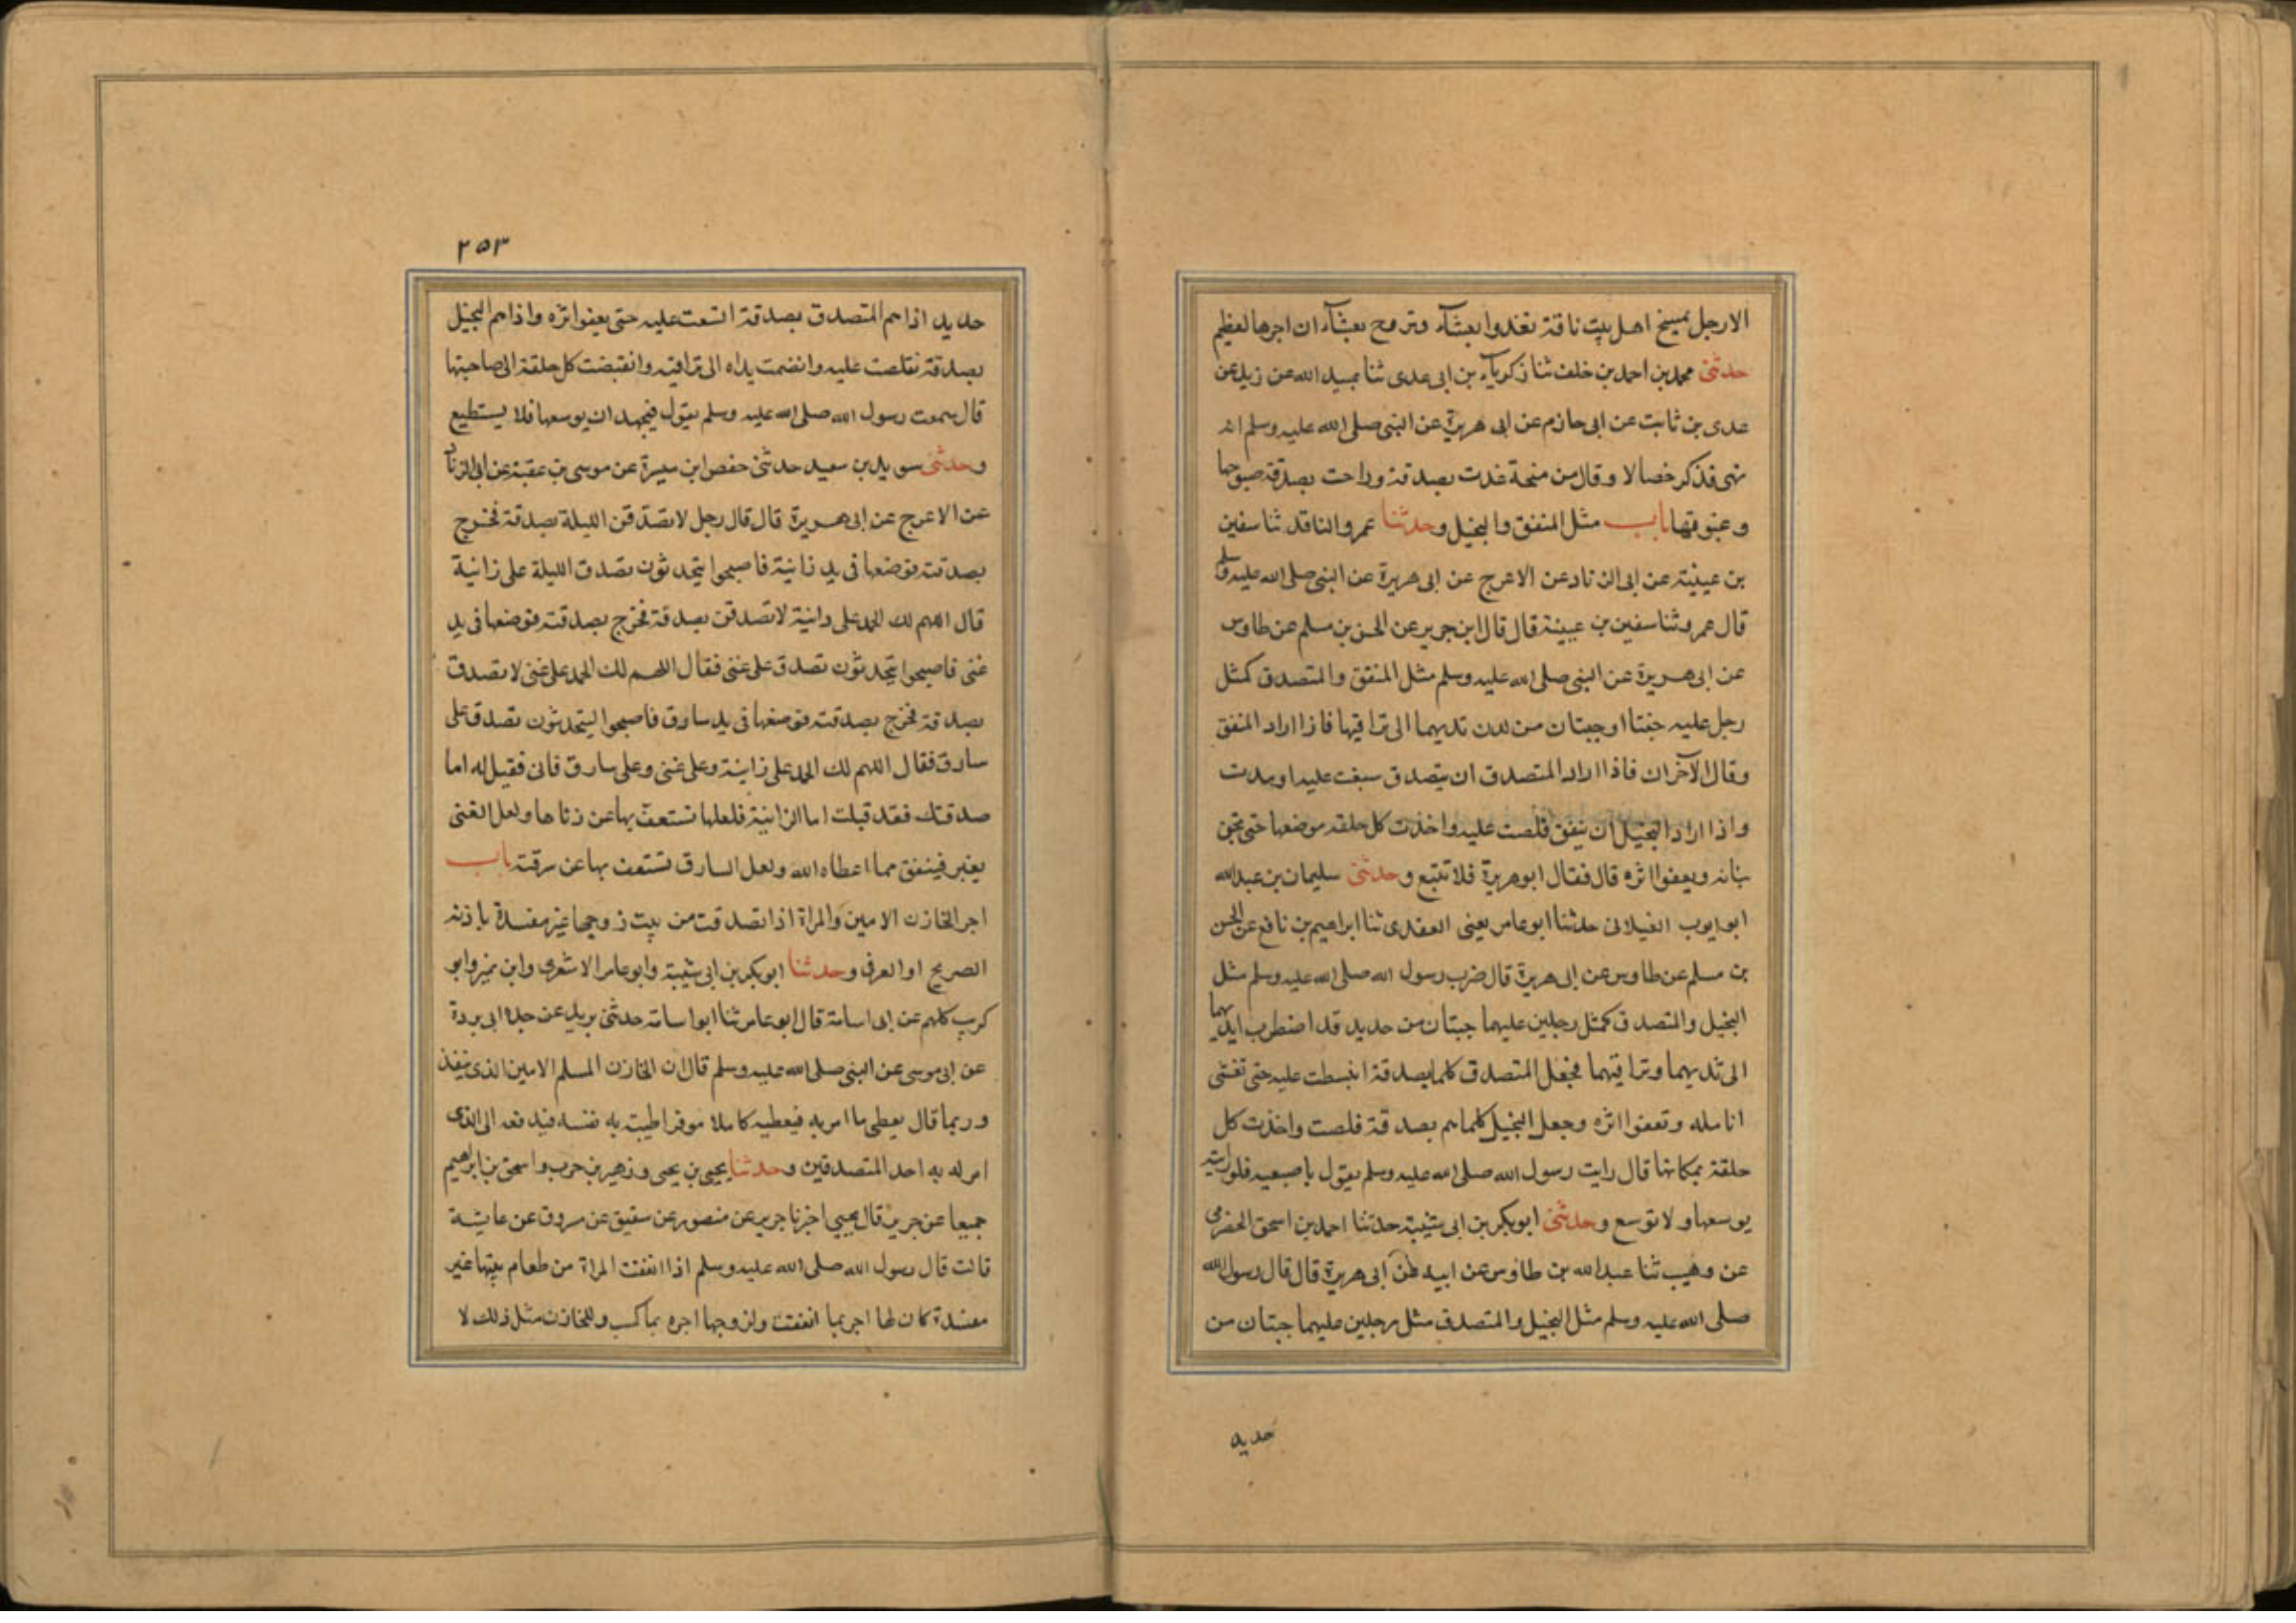 الا رجل يمنح اهل بيت ناقة تغدوا بعشآء وتروح بعشآء ان اجرها لعظيم
حدثنى محمد بن احمد بن خلف ثنا زكريآء بن ابى عدى ثنا عبيد الله عن زيد عن
عدى بن ثابت عن ابى حازم عن ابى هريرة عن النبى صلى الله عليه وسلم انه
نهى فذكر خصالا وقال من منحة غدت بصدقة وراحت بصدقة صبوحها
وغبوقها باب مثل المنفق والبخيل وحدثنا عمرو الناقد ثنا سفين
بن عيينة عن ابى الزناد عن الاعرج عن ابى هريرة عن النبى صلى الله عليه وسلم
قال عمرو ثنا سفين بن عيينة قال قال ابن جرير عن الحسن بن مسلم عن طاوس
عن ابى هريرة عن النبى صلى الله عليه وسلم مثل المنفق والمتصدق كمثل
رجل عليه جنتا اوجبتان من لدن ثديهما الى تراقيها فاذا اراد المنفق
وقال الآخران فاذا اراد المتصدق ان يتصدق سبغت عليه او مدت
واذا اراد البخيل ان ينفق قلصت عليه واخذت كل حلقه موضعها حتى تجن
بنانه ويعفوا اثره قال فقال ابو هريرة فلا تتبع وحدثنى سليمان بن عبد الله
ابو ايوب الغيلانى حدثنا ابو عامر يعنى العقدى ثنا ابراهيم بن نافع عن الحسن
بن مسلم عن طاوس عن ابى هريرة قال ضرب رسول الله صلى الله عليه وسلم مثل
البخيل والمتصدق كمثل رجلين عليهما جبتان من حديد قد اضطرب ايديهما
الى ثديهما وتراقيهما فجعل المتصدق كلما بصدقة انبسطت عليه حتى تغشى
انامله وتعفوا اثره وجعل البخيل كلما هم بصدقة قلصت واخذت كل
حلقة بمكانها قال رايت رسول الله صلى الله عليه وسلم يقول باصبعيه فلو رايته
يوسعها ولا توسع وحدثنى ابو بكر بن ابى شيبة حدثنا احمد بن اسحق الحضرمى
عن وهيب ثنا عبد الله بن طاوس عن ابيه عن ابى هريرة قال قال رسول الله
صلى الله عليه وسلم مثل البخيل والمتصدق مثل رجلين عليهما جبتان من
حديد
٢٥٣
حديد اذا هم المتصدق بصدقة اتسعت عليه حتى يعفوا اثره واذا هم البخيل
بصدقة تقلصت عليه وانضمت يداه الى تراقيه وانقبضت كل حلقة الى صاحبتها
قال سمعت رسول الله صلى الله عليه وسلم يقول فيجهد ان يوسعها فلا يستطيع
وحدثنى سويد بن سعيد حدثنى حفص ابن ميسرة عن موسى بن عقبة عن ابى الزناد
عن الاعرج عن ابى هريرة قال قال رجل لاتصدقن الليلة بصدقة فخرج
بصدقته فوضعها فى يد زانية فاصبحوا يتحدثون تصدق الليلة على زانية
قال اللهم لك الحمد على زانية لاتصدقن بصدقة فخرج بصدقته فوضعها فى يد
غنى فاصبحوا يتحدثون تصدق على غنى فقال اللهم لك الحمد على غنى لاتصدق
بصدقة فخرج بصدقته فوضعها فى يد سارق فاصبحوا ليتحدثون تصدق على
سارق فقال اللهم لك الحمد على زانية وعلى غنى وعلى سارق فاتى فقيل له اما
صدقتك فقد قبلت اما الزانية فلعلها تستعف بها عن زناها ولعل الغنى
يعتبر فينفق مما اعطاه الله ولعل السارق تستعف بها عن سرقته باب
اجر الخازن الامين والمراة اذا تصدقت من بيت زوجها غير مفسدة باذنه
الصريح او العرفى وحدثنا ابو بكر بن ابى شيبة وابو عامر الاشعرى وابن نمير وابو
كريب كلهم عن ابى اسامة قال ابو عامر ثنا ابو اسامة حدثنى بريد عن جده ابى بردة
عن ابى موسى عن النبى صلى الله عليه وسلم قال ان الخازن المسلم الامين الذى ينفذ
وربما قال يعطى ما امر به فيعطيه كاملا موفرا طيبة به نفسه فيدفعه الى الذى
امر له به احد المتصدقين وحدثنا يحيى بن يحيى وزهير بن حرب واسحق بن ابراهيم
جميعا عن جرير قال يحيى اخبرنا جرير عن منصور عن سقيق عن مسروق عن عايشة
قالت قال رسول الله صلى الله عليه وسلم اذا انفقت المراة من طعام بيتها غير
مفسدة كان لها اجر بما انفقت ولزوجها اجره بما كسب وللخازن مثل ذلك لا